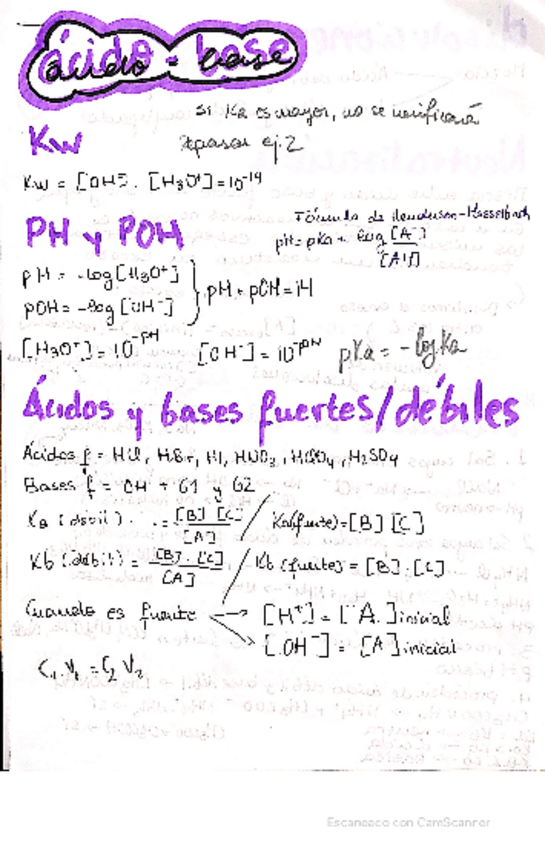 ácido - base
si Ka es mayor, no se verificará
Repasar ej. 2
Kw
Kw = [OH⁻] . [H₃O⁺] = 10⁻¹⁴
Fórmula de Henderson-Hasselbach
pH = pKa + log [A⁻]
[AH]
PH y POH
pH = -log [H₃O⁺]
pOH = -log [OH⁻]
pH + pOH = 14
[H₃O⁺] = 10^-pH [OH⁻] = 10^-pOH pKa = -log Ka
Ácidos y bases fuertes/débiles
Ácidos f = HCl, HBr, HI, HNO₃, HClO₄, H₂SO₄
Bases f = OH + G1 y G2
Ka (débil) = [B] [C] / [A] Ka (fuerte) = [B] [C]
Kb (débil) = [B] . [C] / [A] Kb (fuerte) = [B] . [C]
Cuando es fuerte → [H⁺] = [A] inicial
[OH⁻] = [A] inicial
C₁ V₁ = C₂ V₂
Escaneado con CamScanner